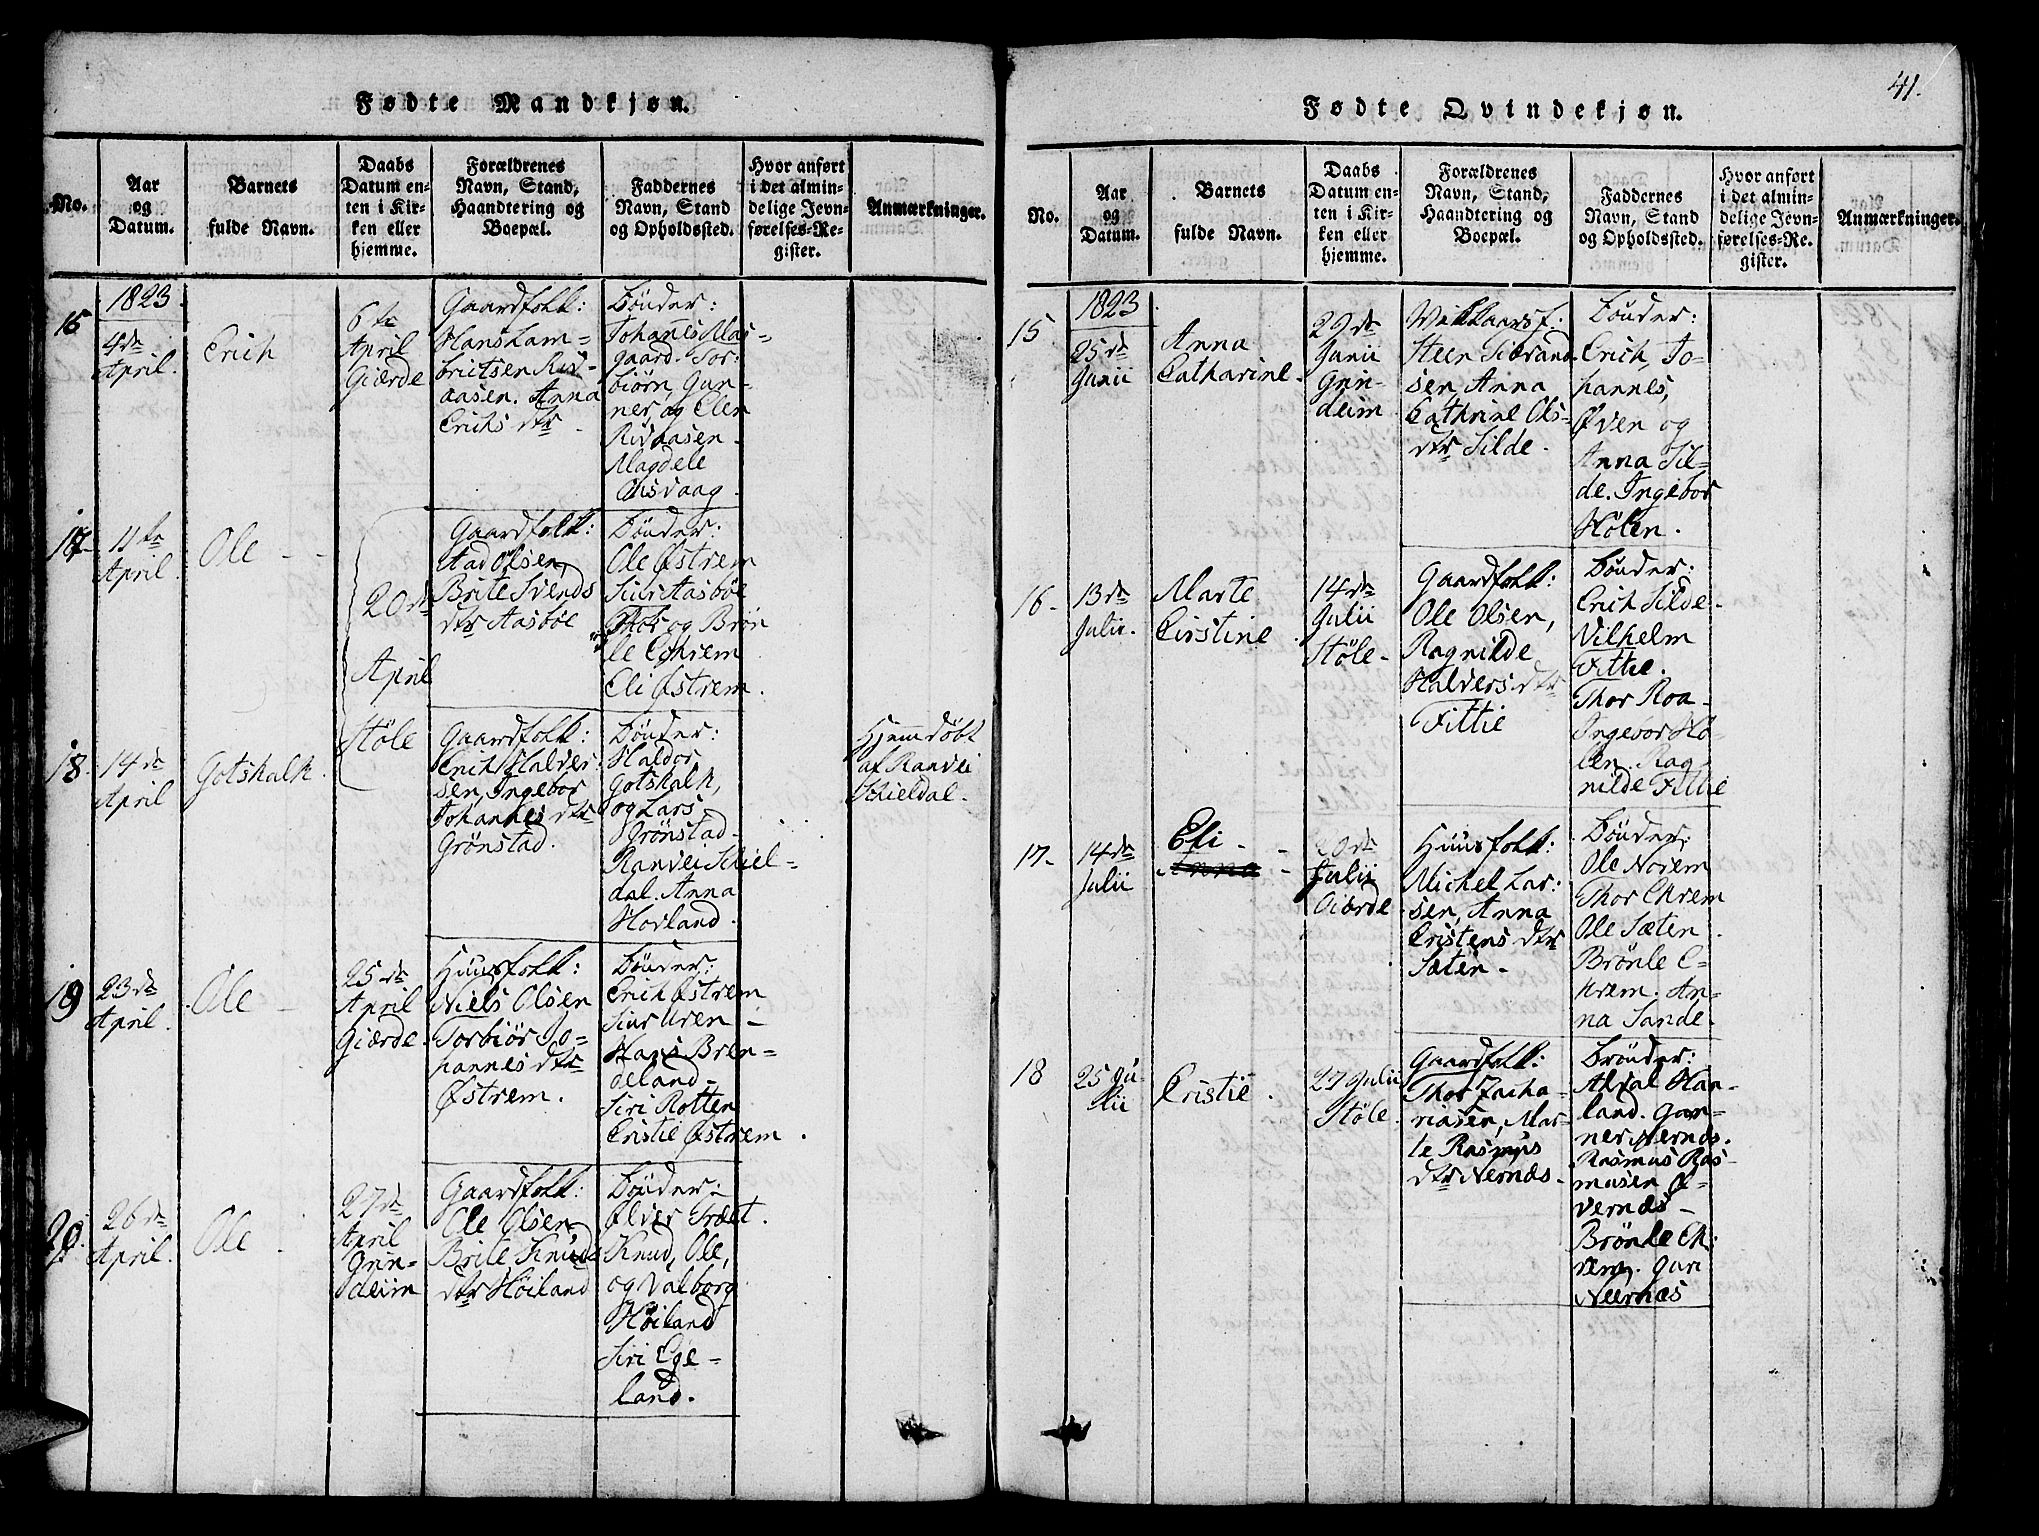 41.
Fødte Mandkjøn.
No.
Aar
og
Datum.
Barnets
fulde Navn.
Daabs
Datum en-
ten i Kir-
ken eller
hjemme.
Forældrenes
Navn, Stand,
Haandtering og
Boepæl.
Faddernes
Navn, Stand
og Opholdssted.
Hvor anført
i det almin-
delige Jevn-
førelses-Re-
gister.
Anmærkninger.
1823.
16
4de
April.
Erich
6te
April
Giærde
Gaardfolk:
Hans Lam-
britsen Riv-
aasen. Anna
Erichs dtr
Bönder:
Johanes Mas-
gaard. Tor-
biörn, Gun-
ner, og Elen
Rivaasen.
Magdele
Olisvaag.
17.
11te
April.
Ole
20de
April
Støle
Gaardfolk:
Aad Olsen,
Brite Svends
dtr Aasböe
Bönder:
Ole Østrem
Siur Aasböe
Thor og Brön
le Echrem
Eli Østrem.
18.
14de
April
Gotskalk.
Gaardfolk:
Erich Halver-
sen, Ingebor
Johannes dtr
Grönstad.
Bönder:
Haldor,
Gotskalk,
og Lars
Grönstad
Ranvei Skiel-
dal. Anna
Hovland.
Hjemmedöbt
af Ranvei
Schieldal.
19
23de
April.
Ole
25de
April
Giærde.
Huusfolk:
Niels Olsen
Torbiör Jo-
hannes dtr
Østrem.
Bönder:
Erich Østrem
Siur Uren
Hans Bren-
deland
Siri Rotten
Cristie Østrem.
20.
26de
April.
Ole
27de
April
Grin-
deim
Gaardfolk:
Ole Olsen,
Brite Knuds
dtr Höiland
Bönder:
Ølver Træet.
Knud, Ole,
og Valborg
Höiland
Siri Ege-
land.
Fødte Qvindekjøn.
No.
Aar
og
Datum.
Barnets
fulde Navn.
Daabs
Datum en-
ten i Kir-
ken eller
hjemme.
Forældrenes
Navn, Stand,
Haandtering og
Boepæl.
Faddernes
Navn, Stand
og Opholdssted.
Hvor anført
i det almin-
delige Jevn-
førelses-Re-
gister.
Anmærkninger.
1823.
15
25de
Junii
Anna
Catharine.
29de
Junii
Grin-
deim
Steen Siovand-
sen, Anna
Cathrine Ols-
dtr Silde.
Bönder:
Erich, Jo-
hannes,
Øven og
Anna Sil-
de. Ingebor
Hölen.
16.
13de
Julii.
Marte
Cirstine.
14de
Julii
Støle.
Gaardfolk:
Ole Olsen,
Ragnilde
Halvers dtr
Fittie
Bönder:
Erich Silde.
Vilhelm
Fittie.
Thor Roa-
Ingebor Hö-
len. Rag-
nilde Fittie
17.
14de
Julii
Eli
Anna
20de
Julii
Giærde
Huusfolk:
Michel Lar-
sen, Anna
Cristens dtr
Sæten.
Bönder:
Ole Norem
Thor Ekrem
Ole Sæten.
Brönle E-
krem. An-
na Sande.
18
25 Ju-
lii
Cristie.
27 Julii
Støle.
Gaardfolk:
Thor Zacha-
riasen, Mar-
te Rasmus
dtr Nernæs.
Brönder:
Alval Han-
land. Gun-
ner Nernæs.
Rasmus Ras-
musen Ø-
vernæs
Brönle Ek-
rem. Guri
Neernæs